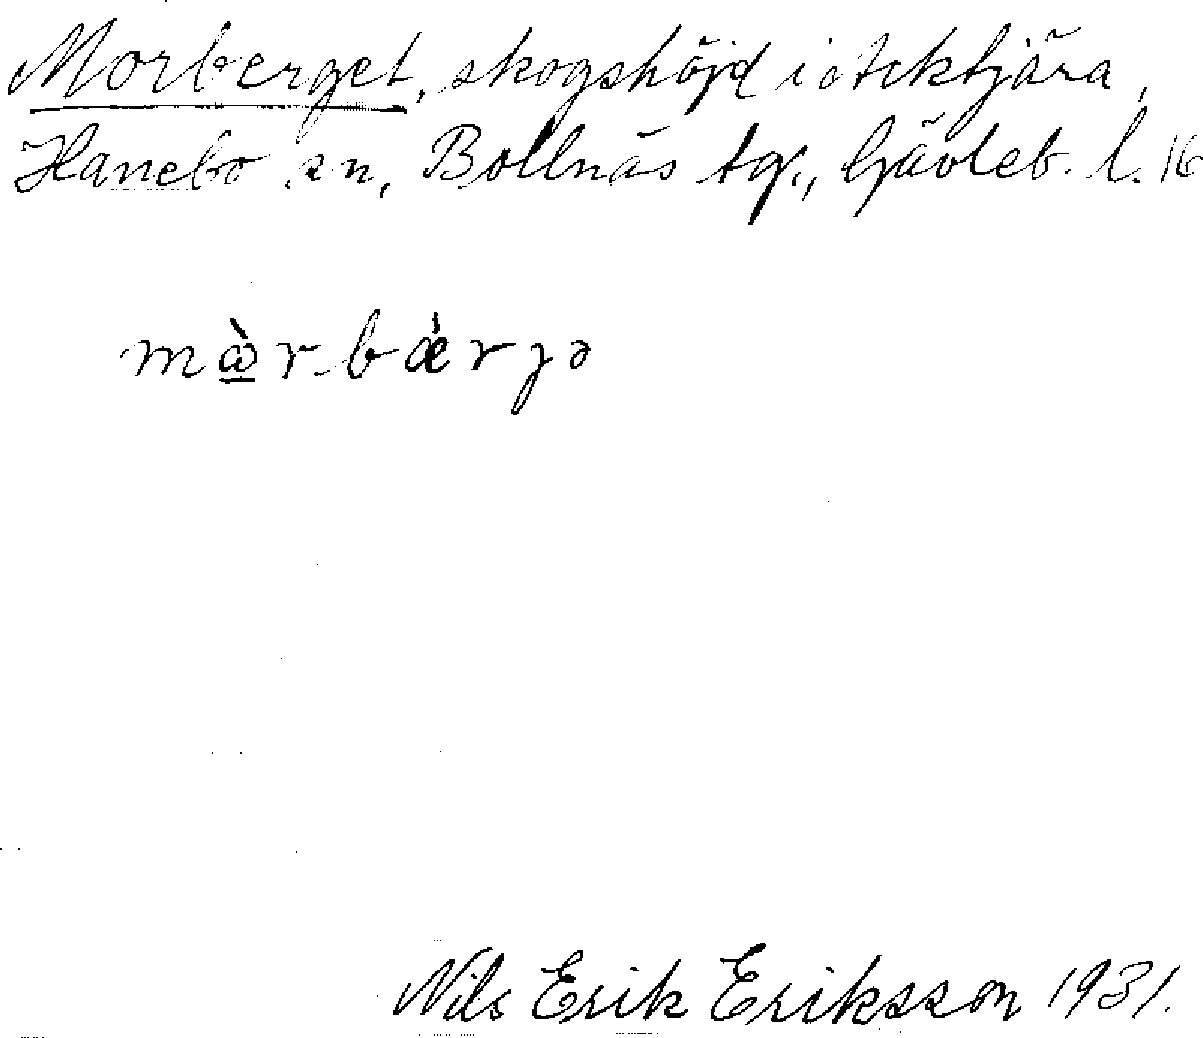 Morberget, skogshöjd i Stektjära,
Hanebo sn, Bollnäs tg., Gävleb. l. 16
mὼr-bæ̀rȷə
Nils Erik Eriksson 1931.